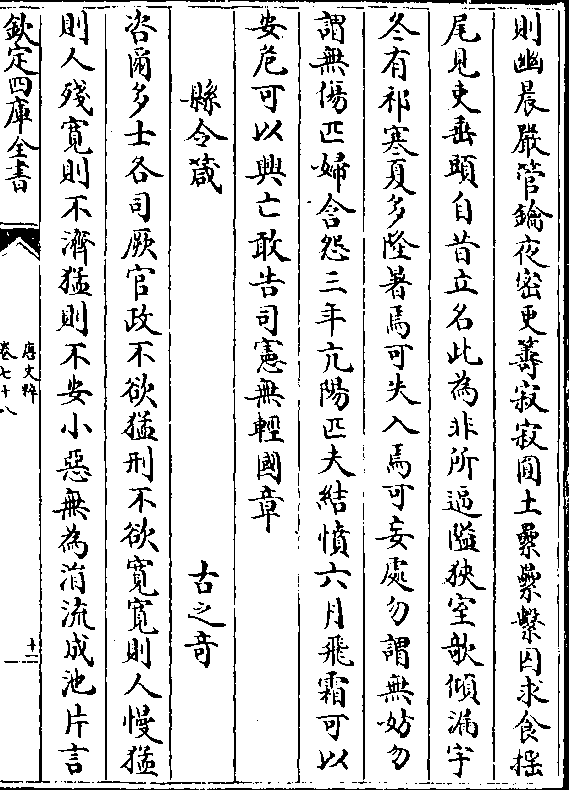 則幽晨嚴管鑰夜密更籌寂寂圜土纍纍繫囚求食揺
尾見吏垂頭自昔立名此為非所逼隘狹室欹傾漏宇
冬有祁寒夏多隆暑焉可失入焉可妄處勿謂無妨勿
謂無傷匹婦含怨三年亢陽匹夫結憤六月飛霜可以
安危可以興亡敢告司憲無輕國章
縣令箴 古之奇
咨爾多士各司厥官政不欲猛刑不欲寛寛則人慢猛
則人殘寛則不濟猛則不安小惡無為涓流成池片言
欽定四庫全書
唐文粹
卷七十八
十一